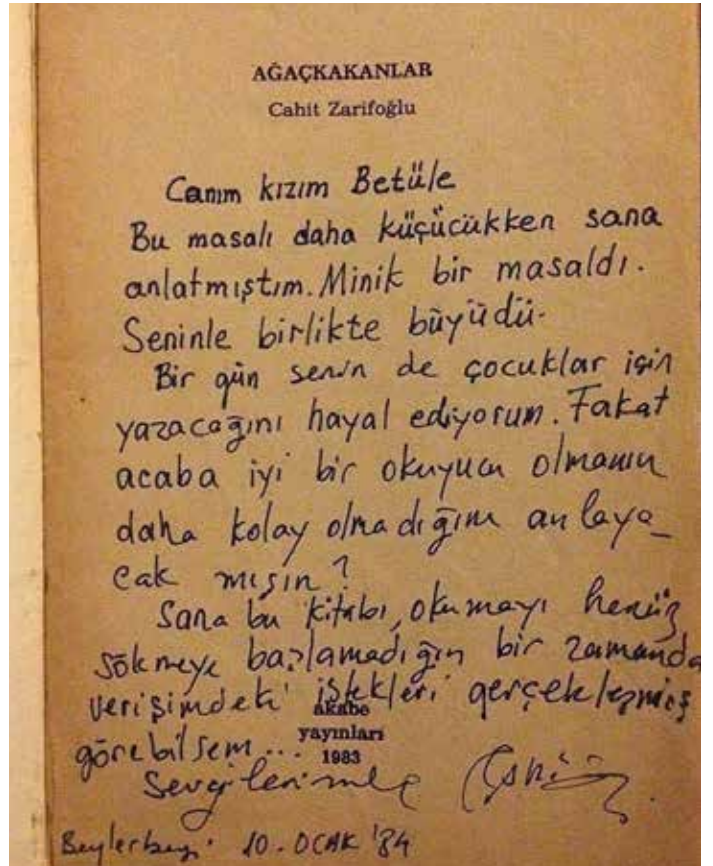 AĞAÇKAKANLAR
Cahit Zarifoğlu
Canım kızım Betüle
Bu masalı daha küçücükken sana
anlatmıştım. Minik bir masaldı.
Seninle birlikte büyüdü.
Bir gün senin de çocuklar için
yazacağını hayal ediyorum. Fakat
acaba iyi bir okuyucu olmanın
daha kolay olmadığını anlaya_
cak mısın?
Sana bu kitabı, okumayı henüz
sökmeye başlamadığın bir zamanda
verişimdeki istekleri gerçekleşmiş
görebilsem...
akabe
yayınları
1983
Sevgilerimle
Beylerbeyi. 10. OCAK '84